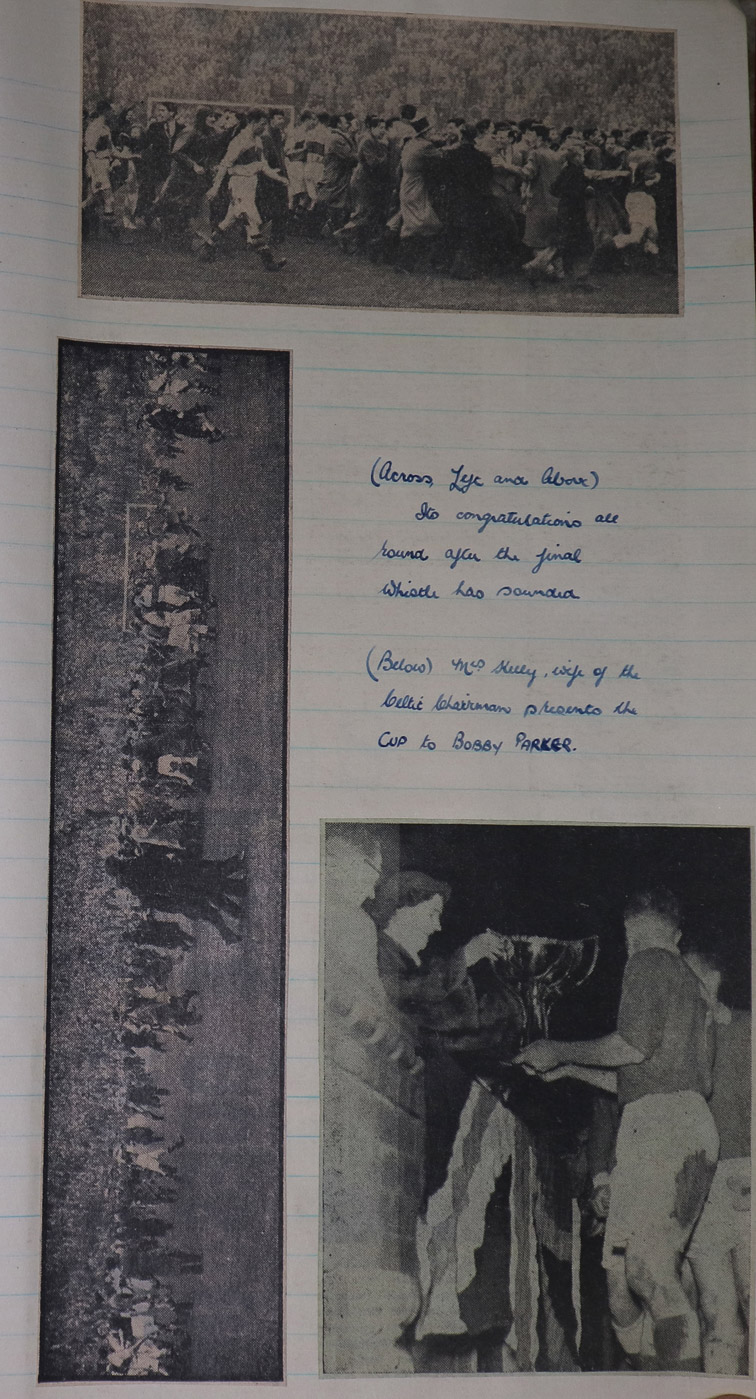 (Across, Left and Above)
Its congratulations all
round after the final
whistle has sounded
(Below) Mrs Kelly, wife of the
Celtic Chairman presents the
CUP to BOBBY PARKER.